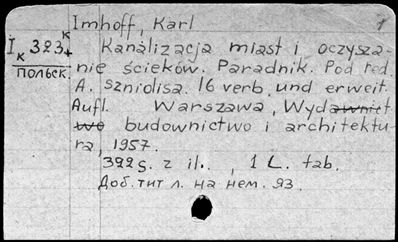 Imhoff, Karl
1
I к 323 к
4
ПОЛЬСК.
Kanalizacja miast i oczysza-
nie ścieków. Paradnik. Pod red.
A. szniolisa. 16 verb. und erweit.
Aufl. Warszawa, Wydawnict
wo budownictwo i architektu-
ra, 1957.
392 s. z il., 1 L. tab.
Доб. тит л. на нем. яз.